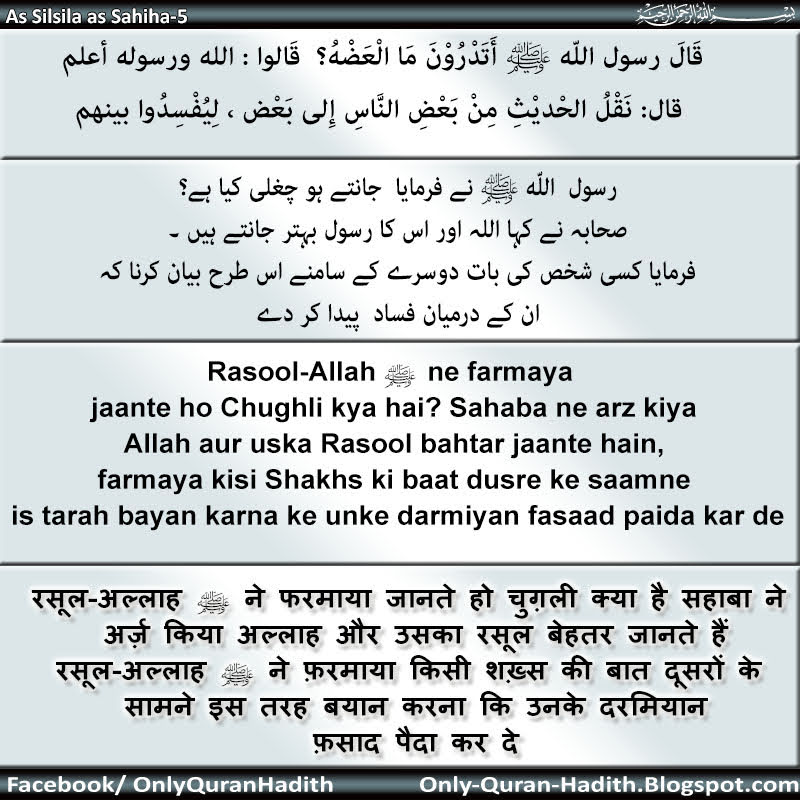 As Silsila as Sahiha-5
بسم الله الرحمن الرحيم
قَالَ رسول اللّه ﷺ أَتَدْرُوْنَ مَا الْعَضْهُ؟ قَالوا : الله ورسوله أعلم
قال: نَقْلُ الحْديْثِ مِنْ بَعْضِ النَّاسِ إِلى بَعْض ، لِيُفْسِدُوا بينهم
رسول اللّه ﷺ نے فرمایا جانتے ہو چغلی کیا ہے؟
صحابہ نے کہا اللہ اور اس کا رسول بہتر جانتے ہیں ۔
فرمایا کسی شخص کی بات دوسرے کے سامنے اس طرح بیان کرنا کہ
ان کے درمیان فساد پیدا کر دے
Rasool-Allah ﷺ ne farmaya
jaante ho Chughli kya hai? Sahaba ne arz kiya
Allah aur uska Rasool bahtar jaante hain,
farmaya kisi Shakhs ki baat dusre ke saamne
is tarah bayan karna ke unke darmiyan fasaad paida kar de
रसूल-अल्लाह ﷺ ने फरमाया जानते हो चुग़ली क्या है सहाबा ने
अर्ज़ किया अल्लाह और उसका रसूल बेहतर जानते हैं
रसूल-अल्लाह ﷺ ने फ़रमाया किसी शख़्स की बात दूसरों के
सामने इस तरह बयान करना कि उनके दरमियान
फ़साद पैदा कर दे
Facebook/ OnlyQuranHadith
Only-Quran-Hadith.Blogspot.com